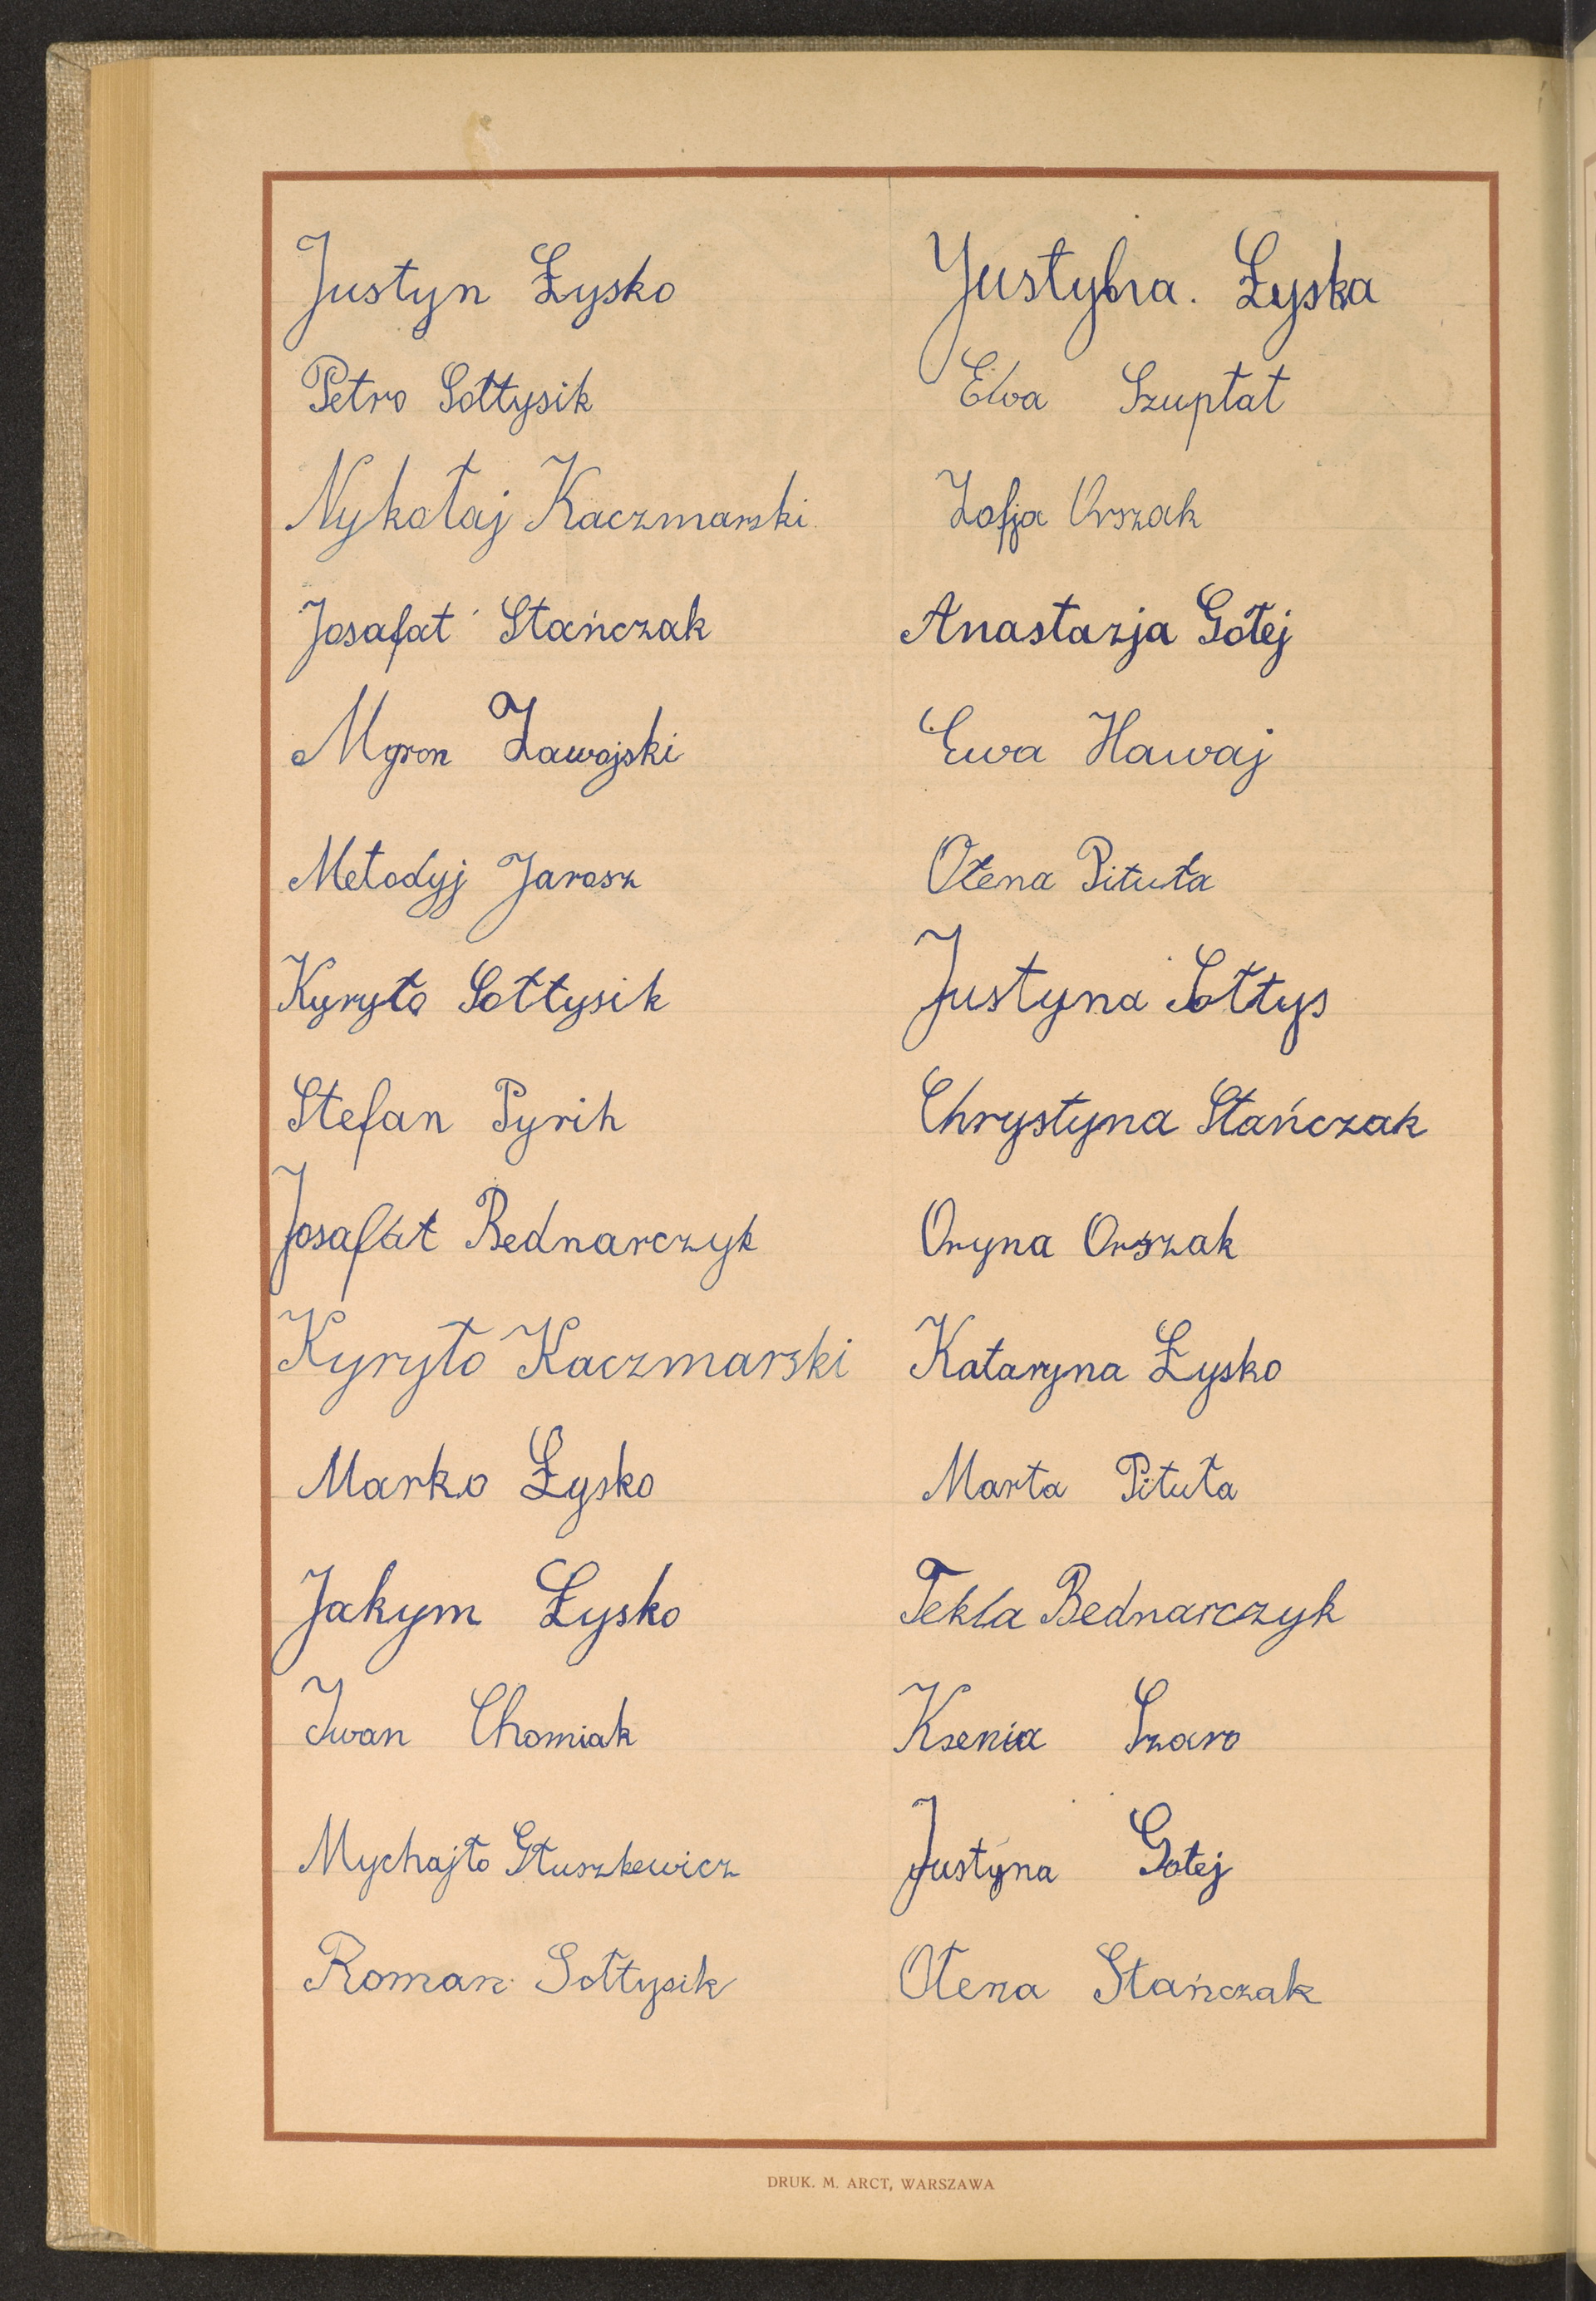 Justyn Łysko
Petro Sołtysik
Nykołaj Kaczmarski
Josafat Stańczak
Myron Zawojski
Metodyj Jarosz
Kyryło Sołtysik
Stefan Pyrih
Josafat Bednarczyk
Kyryło Kaczmarski
Marko Łysko
Jakym Łysko
Iwan Chomiak
Mychajło Głuszkewicz
Roman Sołtysik
Justyna. Łyska
Ewa Szupłat
Zofja Orszak
Anastazja Gołej
Ewa Hawaj
Ołena Pituła
Justyna Sołtys
Chrystyna Stańczak
Oryna Orszak
Kataryna Łysko
Marta Pituła
Tekla Bednarczyk
Ksenia Szaro
Justyna Gołej
Ołena Stańczak
DRUK. M. ARCT, WARSZAWA